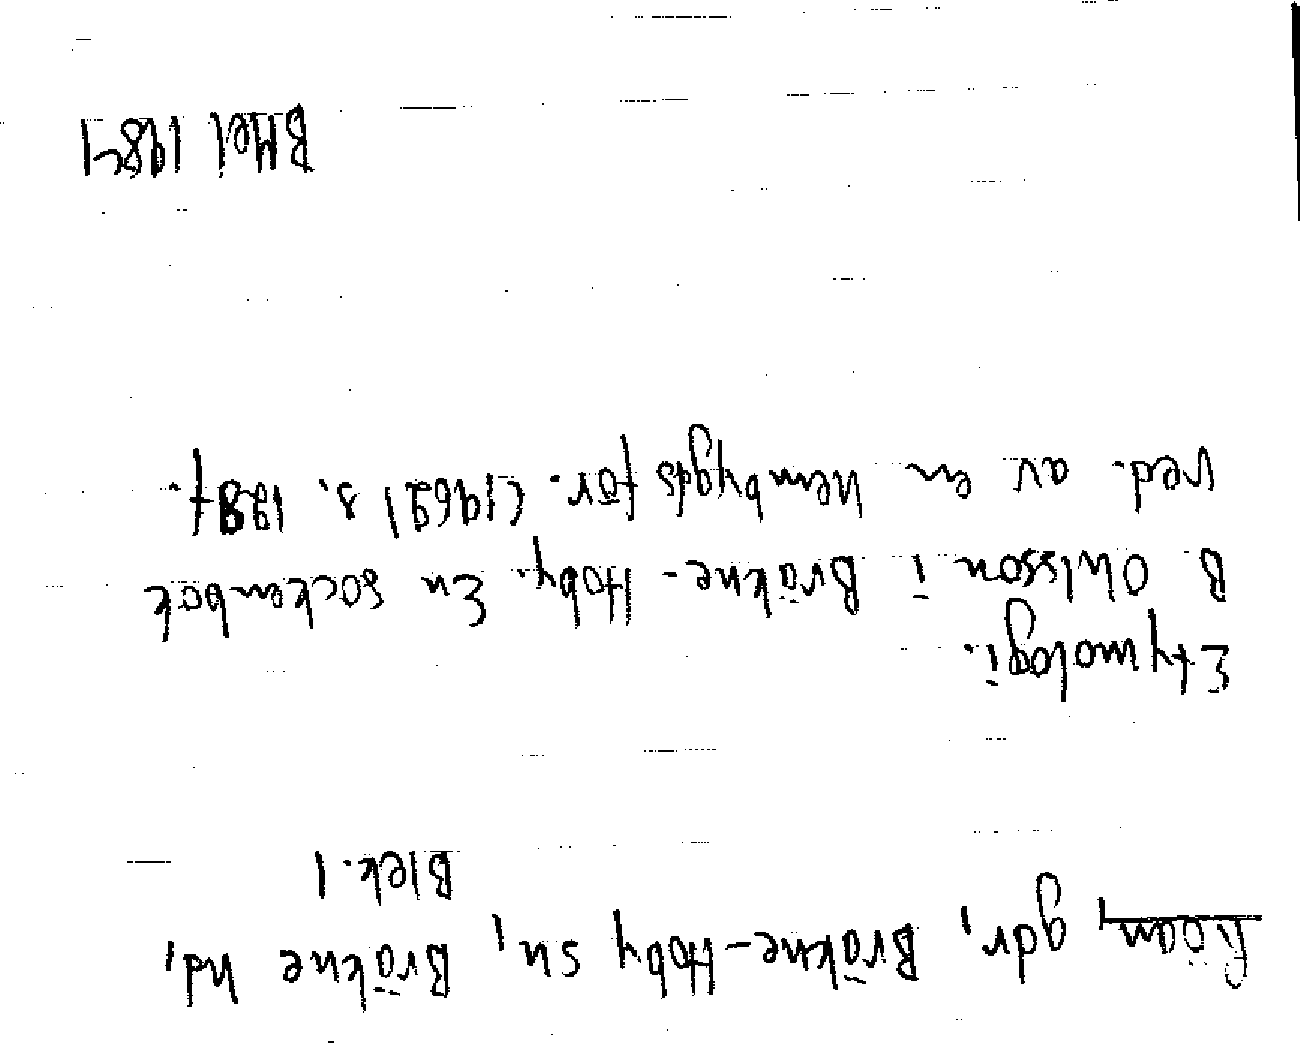 Röam, gdr, Bräkne-Hoby sn, Bräkne hd,
Blek. l
Etymologi.
B. Ohlsson i Bräkne-Hoby. En sockenbok
red. av en hembygdsför. (1962) s. 198f.
BMel 1987